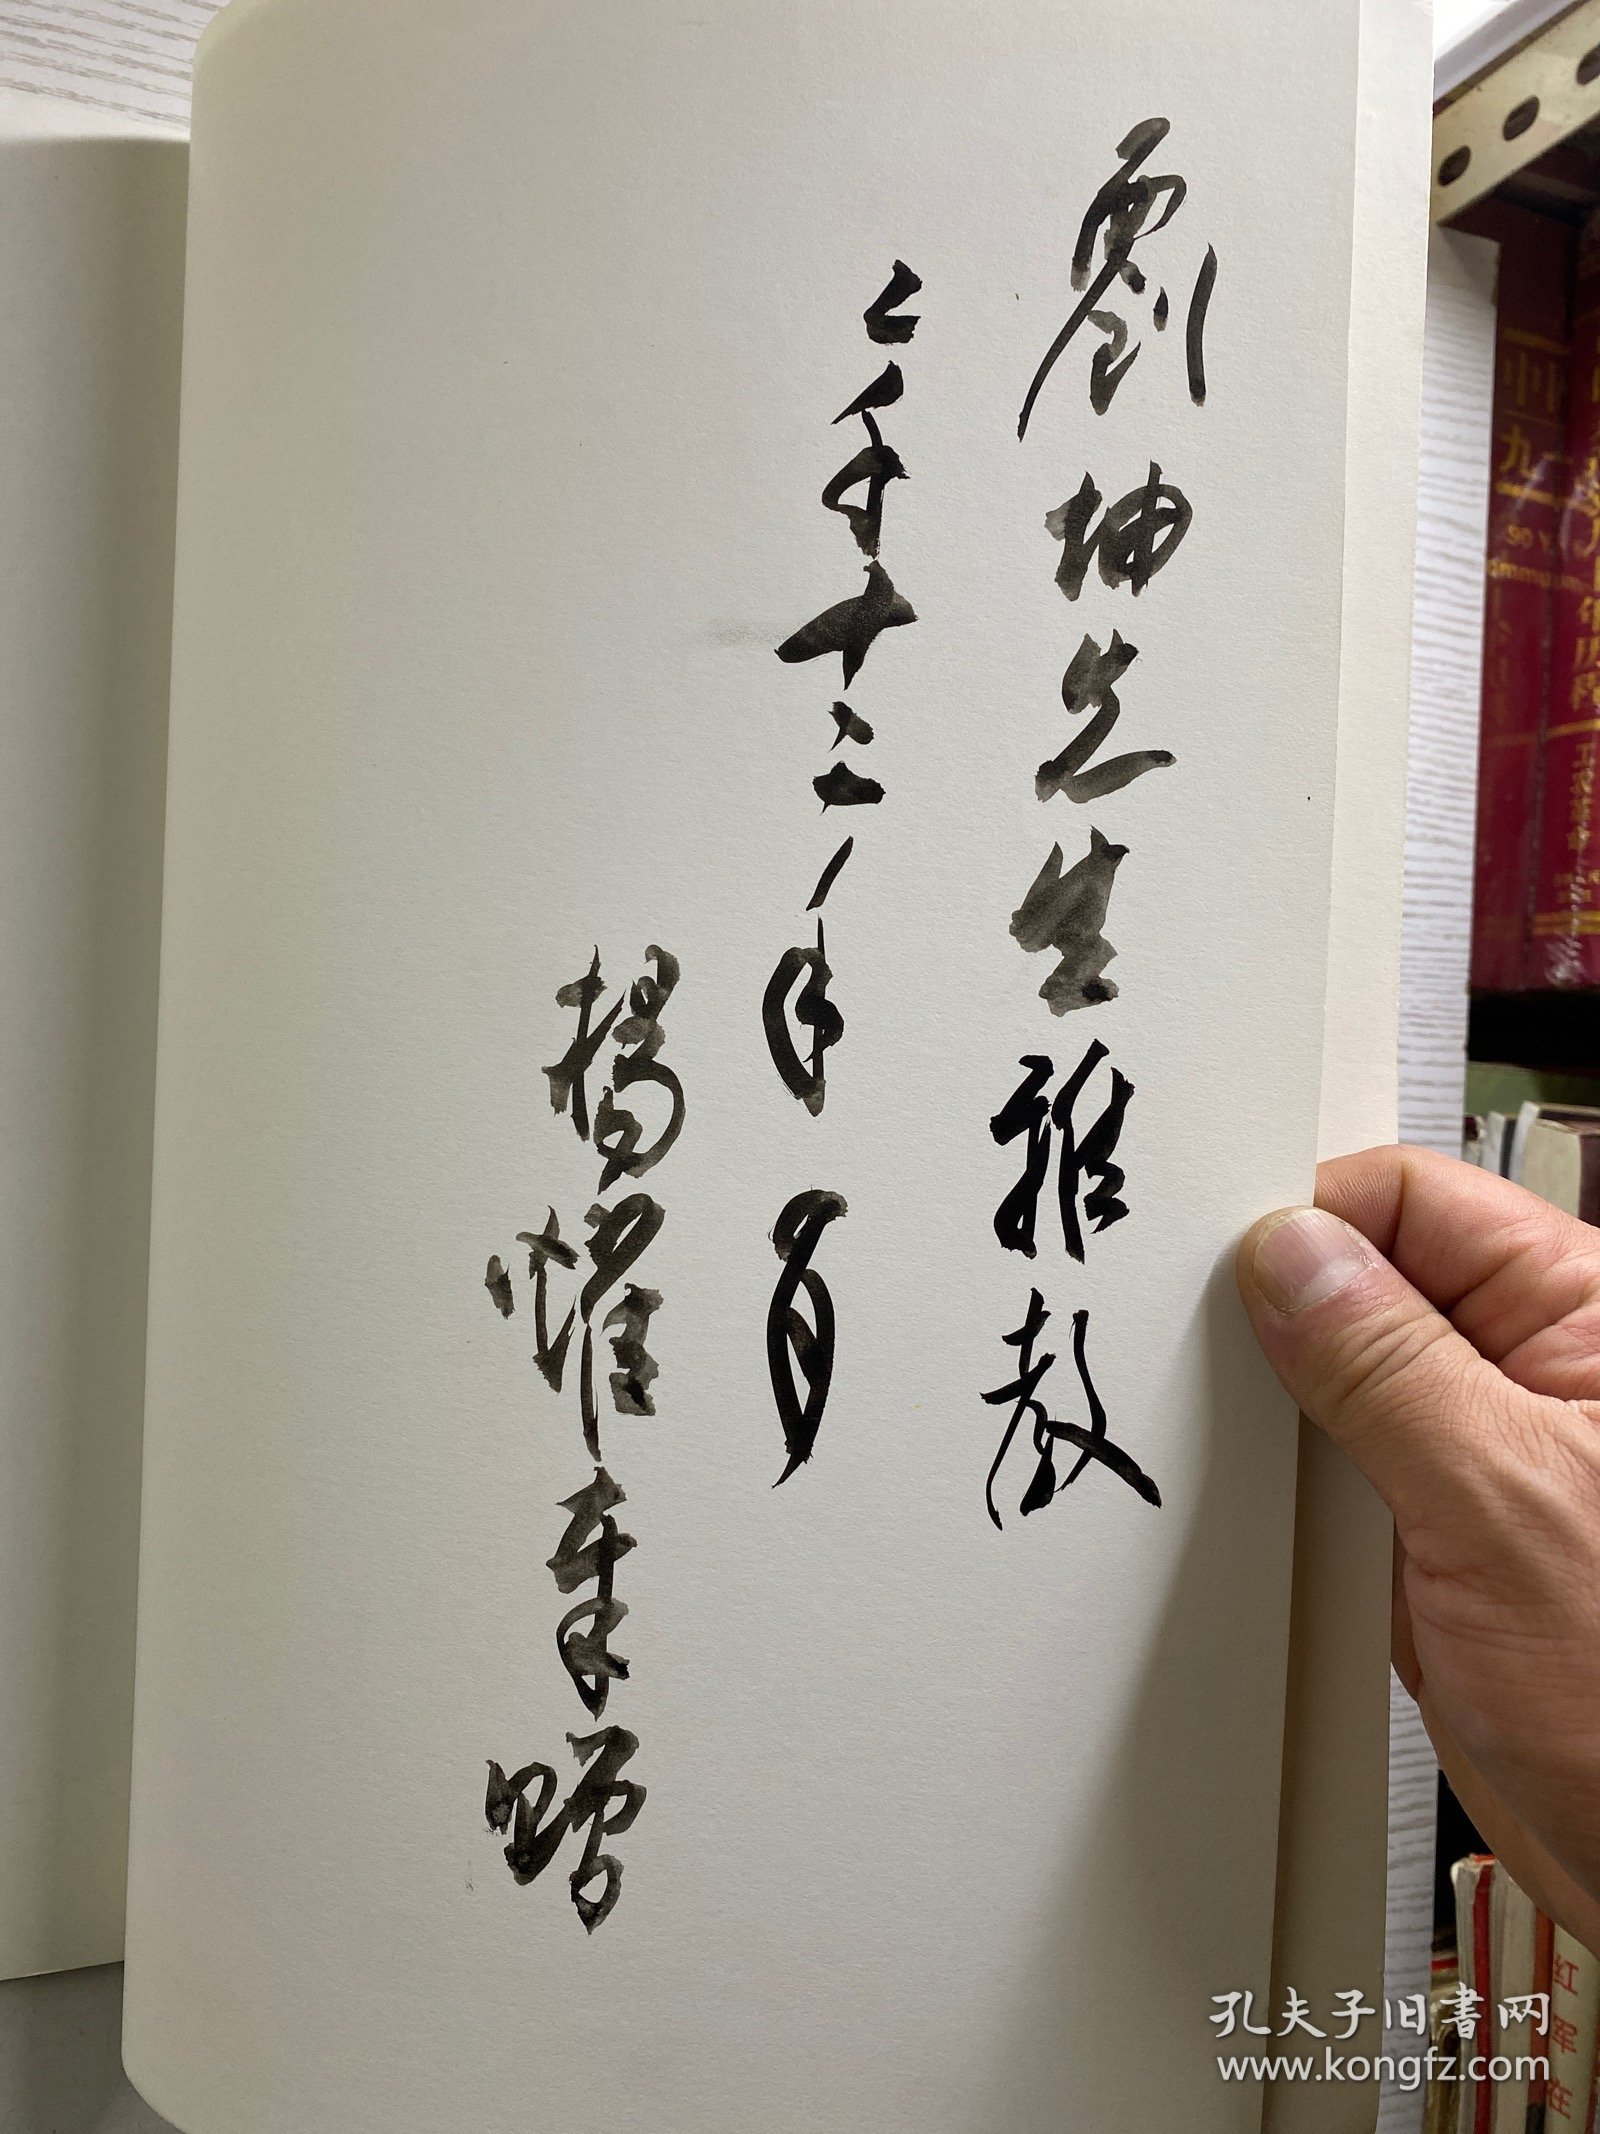 劉坤先生雅教
二千十二年月
楊耀奉贈
红军在
孔夫子旧書网
www.kongfz.com